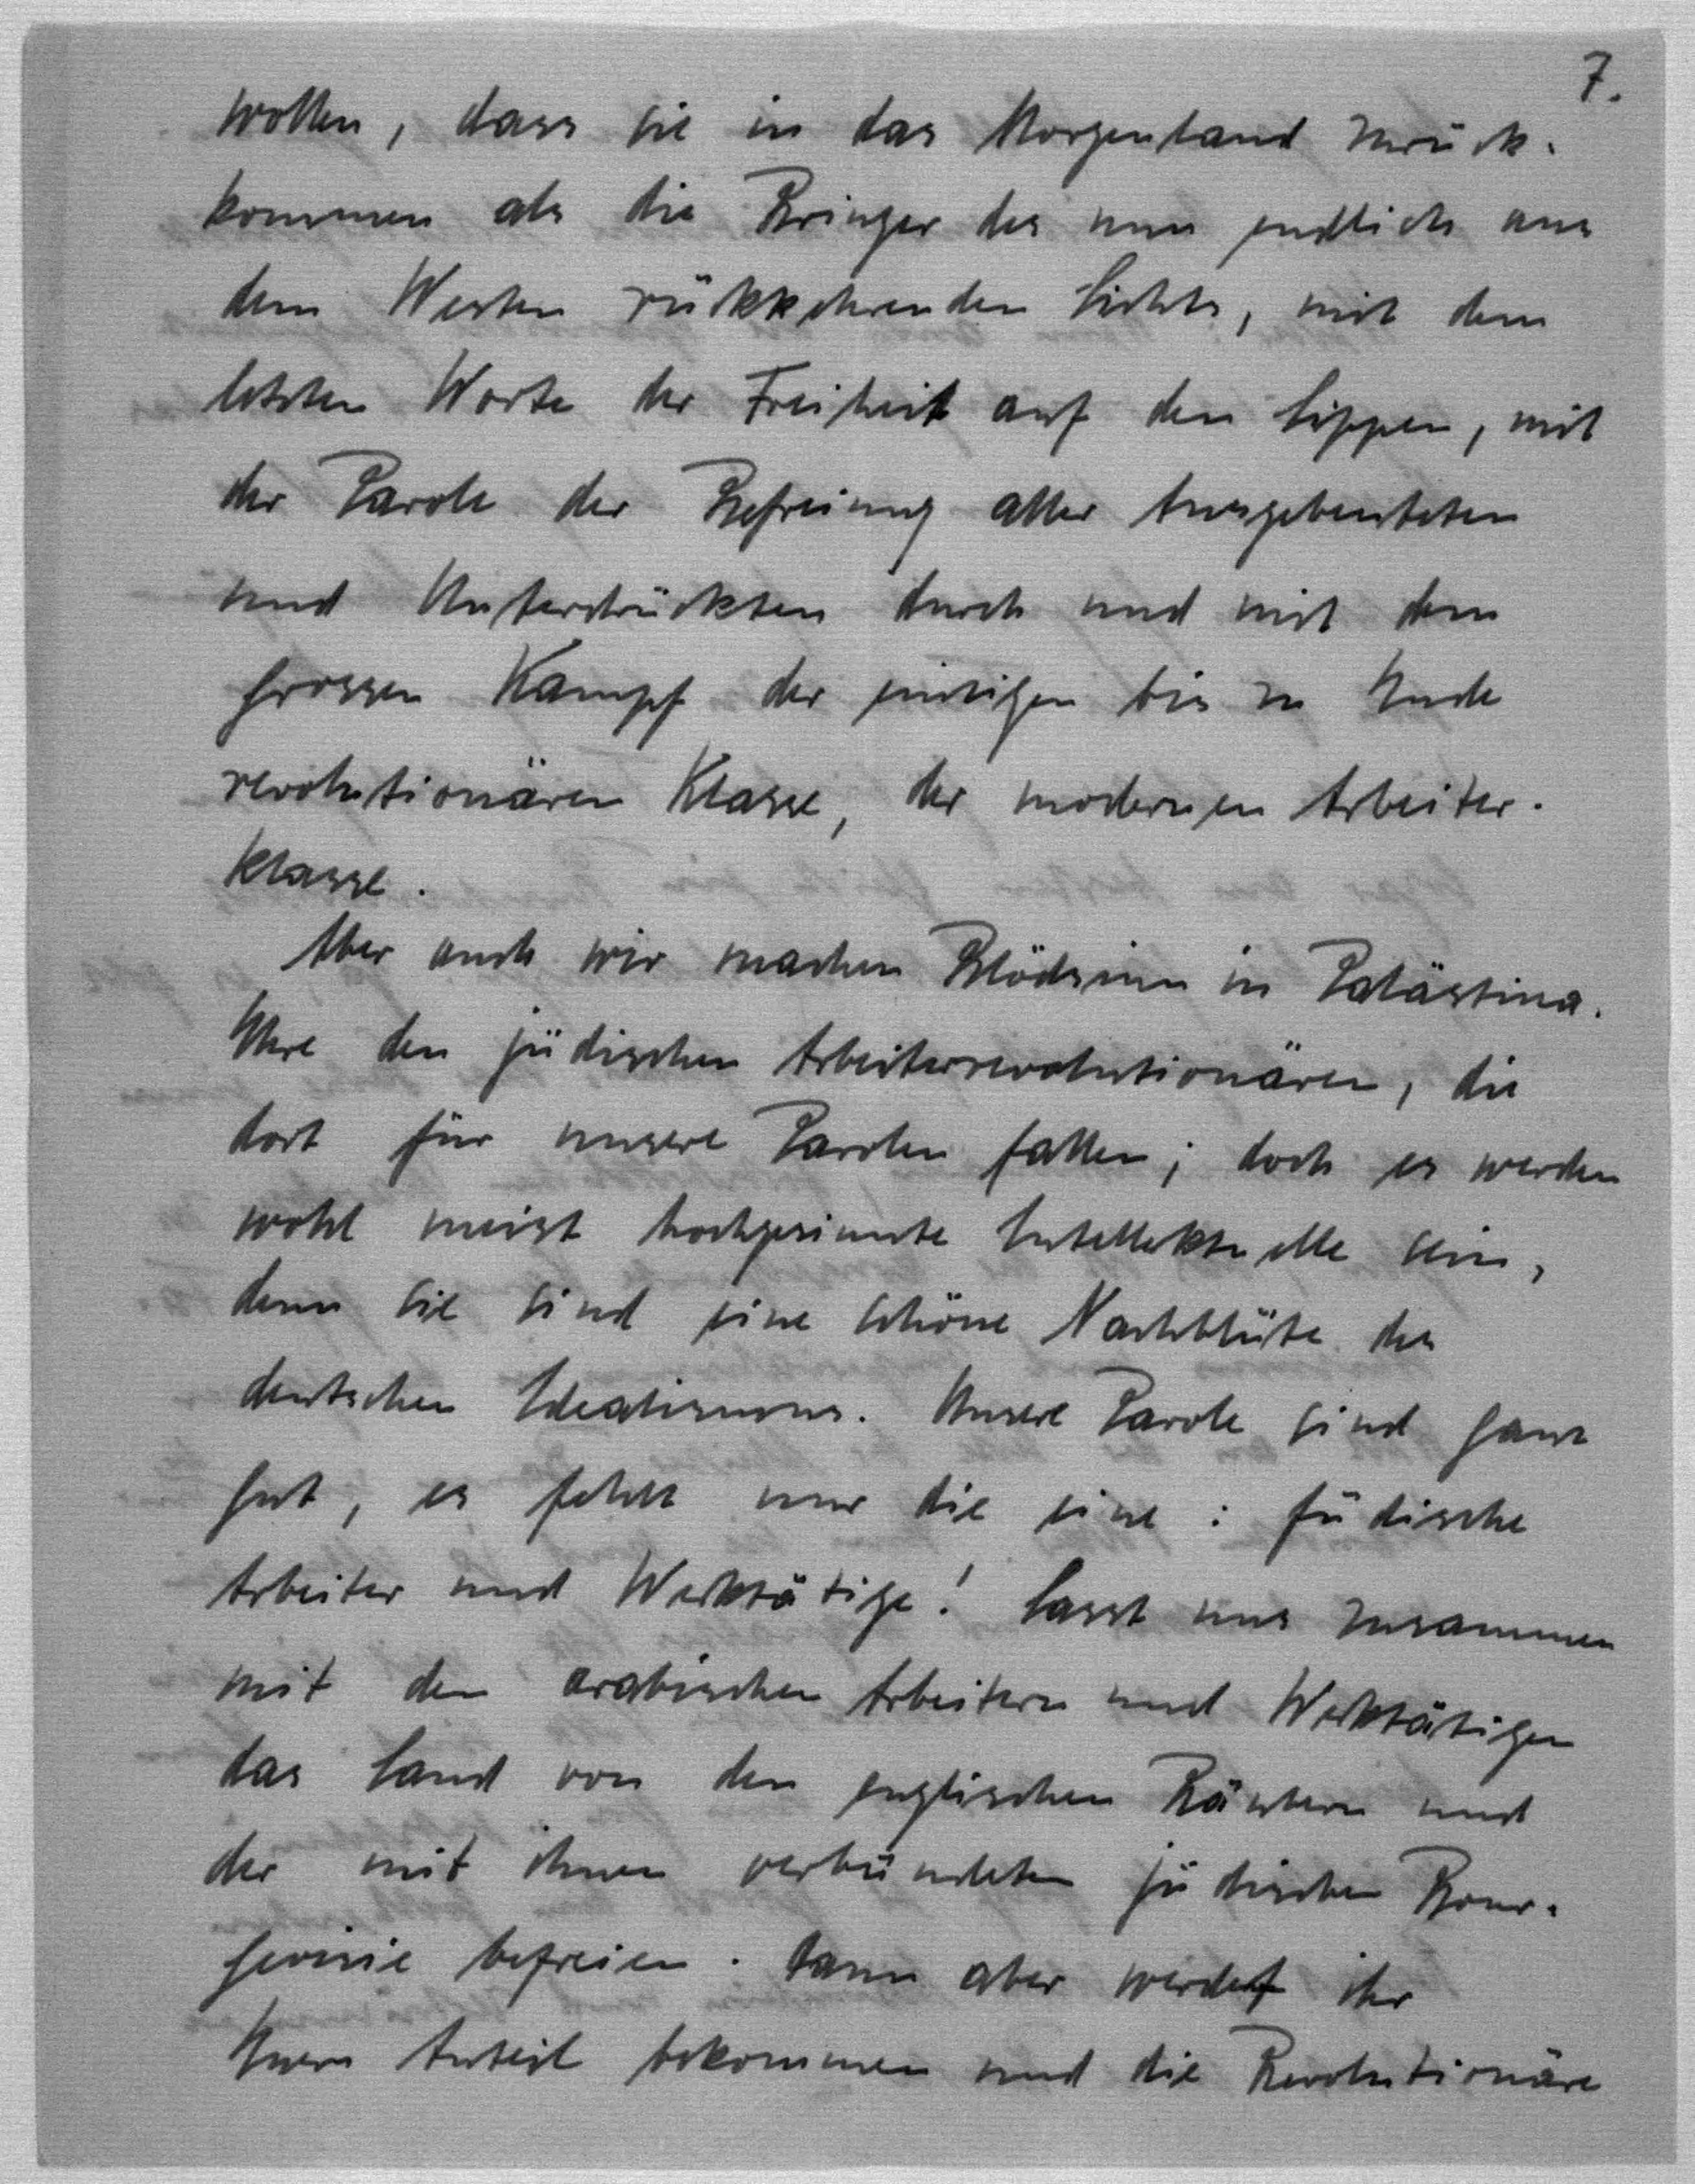 7.
wollen, dass sie in das Morgenland zurück-
kommen als die Bringer des nun endlich aus
dem Westen rükkehrenden Lichts, mit dem
letzten Worte der Freiheit auf den Lippen, mit
der Parole der Befreiung aller Ausgebeuteten
und Unterdrückten durch und mit dem
grossen Kampf der einzigen bis zu Ende
revolutionären Klasse, der modernen Arbeiter-
klasse.
Aber auch wir machen Blödsinn in Palästina.
Ehre den jüdischen Arbeiterrevolutionären, die
dort für unsere Parolen fallen; doch es werden
wohl meist hochgesinnte Intellektuelle sein,
denn sie sind eine schöne Nachblüte des
deutschen Idealismus. Unsere Parole sind ganz
gut, es fehlt nur die eine: Jüdische
Arbeiter und Werktätige! Lasst uns zusammen
mit den arabischen Arbeitern und Werktätigen
das Land von den englischen Räubern und
der mit ihnen verbündeten jüdischen Bour-
geoisie befreien. Dann aber werdet ihr
Euern Anteil bekommen und die Revolutionäre